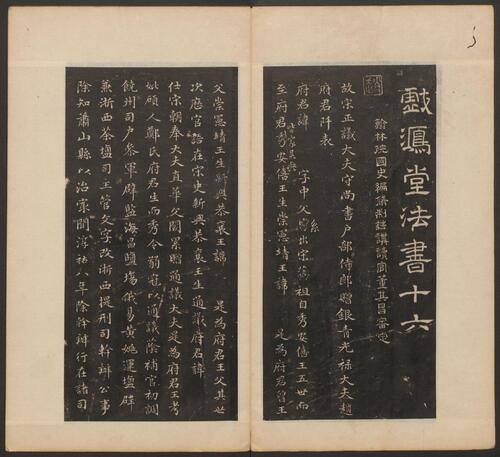 戲鴻堂法書十六
翰林院國史編修制誥講讀官董其昌審定
故宋正議大夫守尚書戶部侍郎贈銀青光祿大夫趙
府君阡表
府君諱 字中父 系出宋藝祖自秀安僖王五世而
至府君秀安僖王生崇憲靖王諱 是為府君曾王
父崇憲靖王生新興恭襄王諱 是為府君王父其世
次歷官語在宋史新興恭襄王生通議府君諱
仕宋朝奉大夫直華文閣累贈通議大夫是為府君王考
妣碩人鄭氏府君生而秀令弱冠以通議蔭補官初調
饒州司戶參軍辟監海昌鹽場俄易黃姚運鹽辟
兼浙西茶鹽司主管文字改浙西提刑司幹辦公事
除知蕭山縣以治最聞浮祐八年除幹辦行在諸司